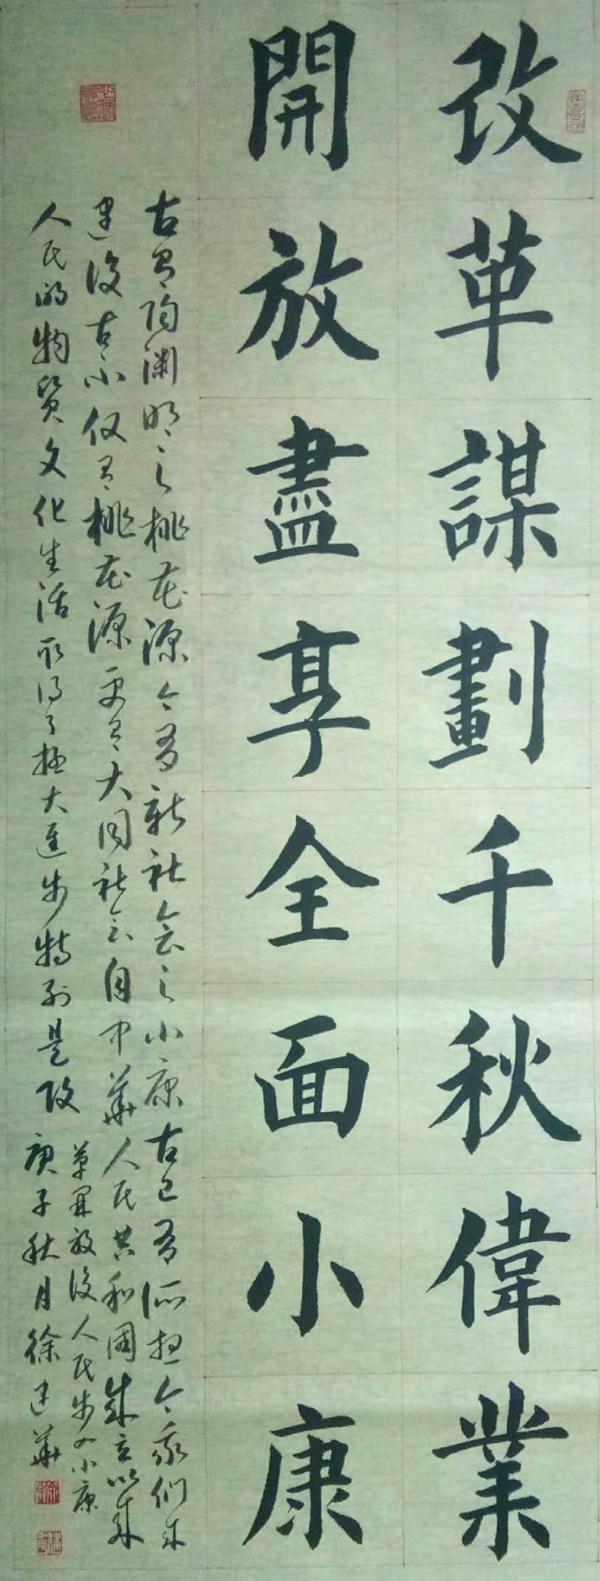 改革謀劃千秋偉業
開放盡享全面小康
古有陶渊明之桃花源今有新社会之小康古已有所想今我们来
建设古不仅有桃花源更有大同社会自中华人民共和国成立以来
人民的物质文化生活取得了极大进步特别是改
革开放后人民步入小康
庚子秋月徐建华